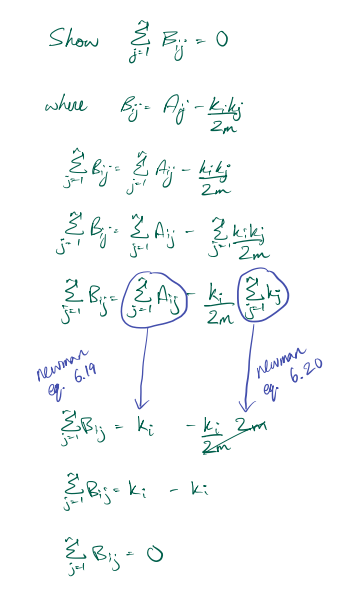 Show ∑_{j=1}^{n} B_{ij} = 0
where B_{ij} = A_{ij} - k_i k_j / 2m
∑_{j=1}^{n} B_{ij} = ∑_{j=1}^{n} A_{ij} - k_i k_j / 2m
∑_{j=1}^{n} B_{ij} = ∑_{j=1}^{n} A_{ij} - ∑_{j=1}^{n} k_i k_j / 2m
∑_{j=1}^{n} B_{ij} = ∑_{j=1}^{n} A_{ij} - k_i / 2m ∑_{j=1}^{n} k_j
newman
eq. 6.19
newman
eq. 6.20
∑_{j=1}^{n} B_{ij} = k_i - k_i / 2m 2m
∑_{j=1}^{n} B_{ij} = k_i - k_i
∑_{j=1}^{n} B_{ij} = 0